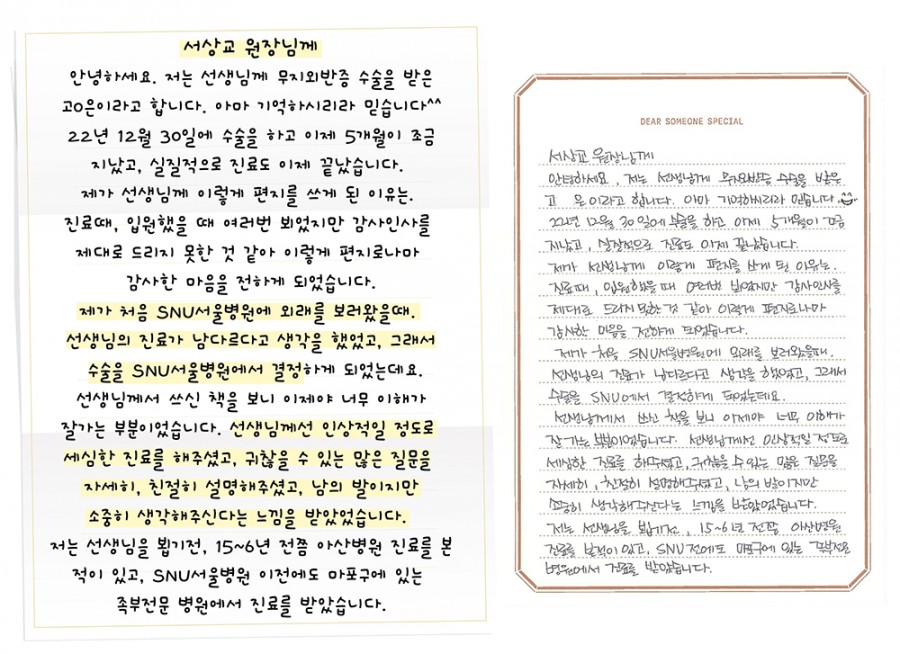 서상교 원장님께
안녕하세요. 저는 선생님께 무지외반증 수술을 받은
고O은이라고 합니다. 아마 기억하시리라 믿습니다^^
22년 12월 30일에 수술을 하고 이제 5개월이 조금
지났고, 실질적으로 진료도 이제 끝났습니다.
제가 선생님께 이렇게 편지를 쓰게 된 이유는.
진료때, 입원했을 때 여러번 뵈었지만 감사인사를
제대로 드리지 못한 것 같아 이렇게 편지로나마
감사한 마음을 전하게 되었습니다.
제가 처음 SNU서울병원에 외래를 보러왔을때.
선생님의 진료가 남다르다고 생각을 했었고, 그래서
수술을 SNU서울병원에서 결정하게 되었는데요.
선생님께서 쓰신 책을 보니 이제야 너무 이해가
잘가는 부분이었습니다. 선생님께선 인상적일 정도로
세심한 진료를 해주셨고, 귀찮을 수 있는 많은 질문을
자세히, 친절히 설명해주셨고, 남의 발이지만
소중히 생각해주신다는 느낌을 받았었습니다.
저는 선생님을 뵙기전, 15~6년 전쯤 아산병원 진료를 본
적이 있고, SNU서울병원 이전에도 마포구에 있는
족부전문 병원에서 진료를 받았습니다.
DEAR SOMEONE SPECIAL
서상교 원장님께
안녕하세요, 저는 선생님께 무지외반증 수술을 받은
고 은이라고 합니다. 아마 기억하시리라 믿습니다
22년 12월 30일에 수술을 하고 이제 5개월이 조금
지났고, 실질적으로 진료도 이제 끝났습니다.
제가 선생님께 이렇게 편지를 쓰게 된 이유는.
진료때, 입원했을 때 여러번 뵈었지만 감사인사를
제대로 드리지 못한 것 같아 이렇게 편지로나마
감사한 마음을 전하게 되었습니다.
제가 처음 SNU서울병원에 외래를 보러왔을때.
선생님의 진료가 남다르다고 생각을 했었고, 그래서
수술을 SNU에서 결정하게 되었는데요.
선생님께서 쓰신 책을 보니 이제야 너무 이해가
잘 가는 부분이었습니다. 선생님께선 인상적일 정도로
세심한 진료를 해주셨고, 귀찮을 수 있는 많은 질문을
자세히, 친절히 설명해주셨고, 남의 발이지만
소중히 생각해주신다는 느낌을 받았었습니다.
저는 선생님을 뵙기전, 15~6년 전쯤 아산병원
진료를 본적이 있고, SNU 전에도 마포구에 있는 족부전문
병원에서 진료를 받았습니다.